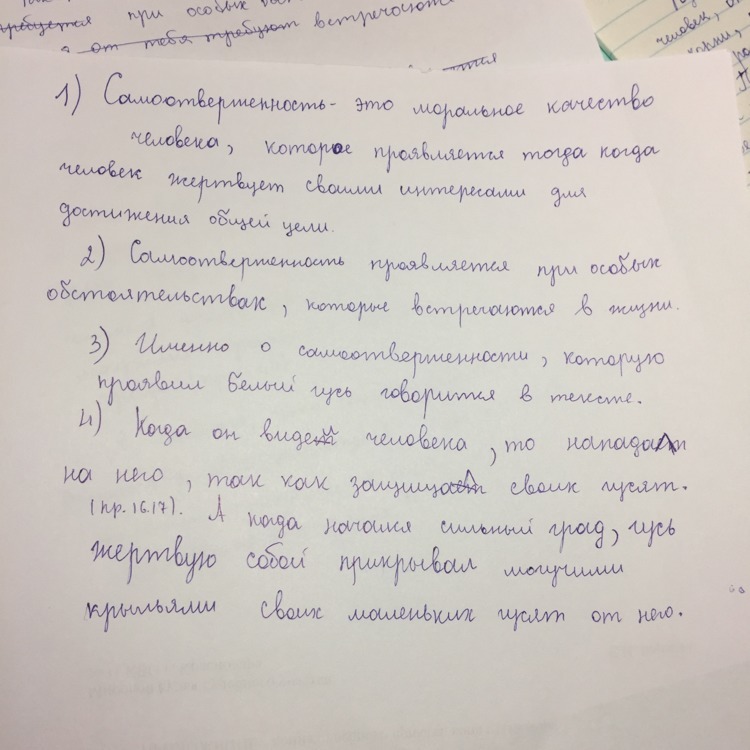 требуется при особых
а от тебя требуют встречают
человек,
1) Самоотверженность - это моральное качество
человека, которое проявляется тогда когда
человек жертвует своими интересами для
достижения общей цели.
2) Самоотверженность проявляется при особых
обстоятельствах, которые встречаются в жизни.
3) Именно о самоотверженности, которую
проявил Белый гусь говорится в тексте.
4) Когда он видел человека, то нападал
на него, так как защищал своих гусят.
(пр. 16.17). А когда начался сильный град, гусь
жертвую собой прикрывал могучими
крыльями своих маленьких гусят от него.